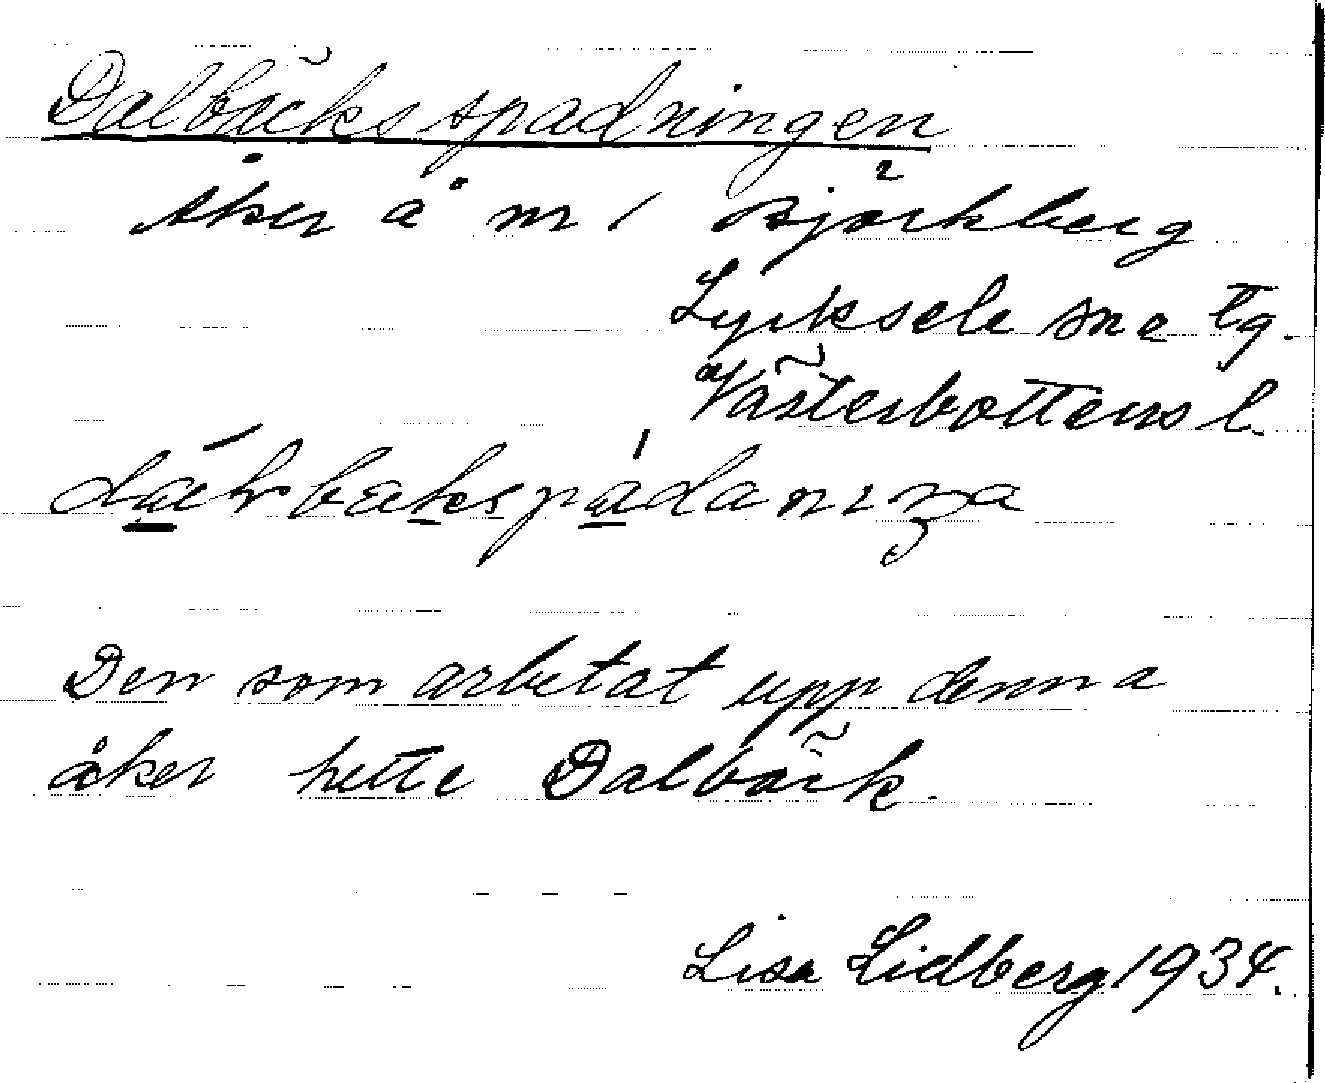 Dalbäcksspadningen
Åker å nr 1 Björkberg
Lycksele sn o tg.
Västerbottens l.
Den som arbetat upp denna
åker hette Dalbäck.
Lisa Lidberg 1934.